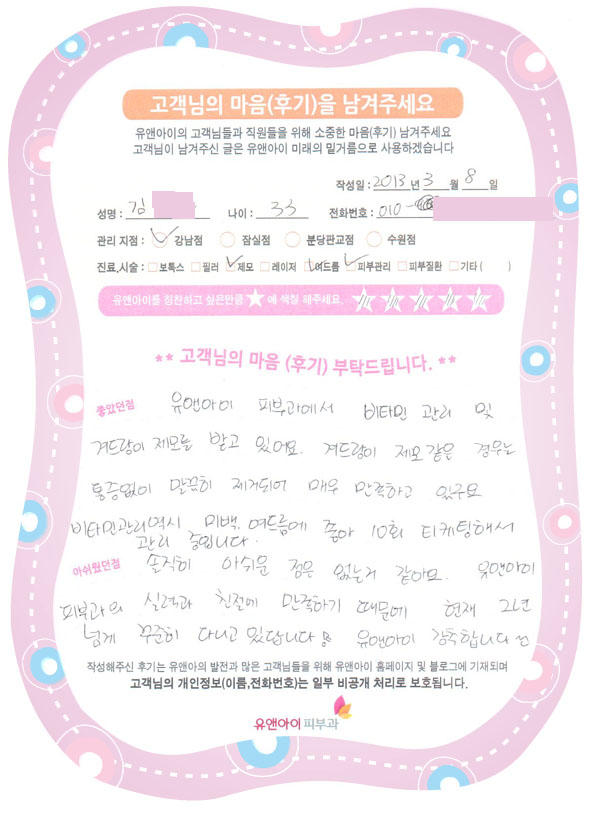 고객님의 마음(후기)을 남겨주세요
유앤아이의 고객님들과 직원들을 위해 소중한 마음(후기) 남겨주세요
고객님이 남겨주신 글은 유앤아이 미래의 밑거름으로 사용하겠습니다
작성일 : 2013 년 3 월 8 일
성명 : 김 나이 : 33 전화번호 : 010 -
관리 지점 : 강남점 잠실점 분당판교점 수원점
진료,시술 : □보톡스 □필러 □제모 □레이저 □여드름 □피부관리 □피부질환 □기타 ( )
유앤아이를 칭찬하고 싶은만큼 ★에 색칠 해주세요.
** 고객님의 마음 (후기) 부탁드립니다. **
좋았던점 유앤아이 피부과에서 비타민 관리 및
겨드랑이 제모를 받고 있어요. 겨드랑이 제모같은 경우는
통증없이 말끔히 제거되어 매우 만족하고 있구요
비타민관리역시 미백, 여드름에 좋아 10회 티케팅해서
관리 중입니다.
아쉬웠던점 솔직히 아쉬운 점은 없는거 같아요. 유앤아이
피부과의 실력과 친절에 만족하기 때문에 현재 2년
넘게 꾸준히 다니고 있답니다 유앤아이 감축합니다
작성해주신 후기는 유앤아의 발전과 많은 고객님들을 위해 유앤아이 홈페이지 및 블로그에 기재되며
고객님의 개인정보(이름,전화번호)는 일부 비공개 처리로 보호됩니다.
유앤아이 피부과